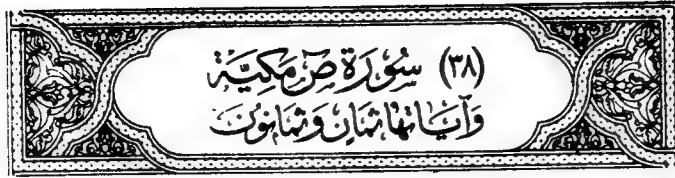 (٣٨) سُورَة صٓ مَكِيَّة
وَآيَاتهَا ثَمَانٍ وَثَمَانُونَ